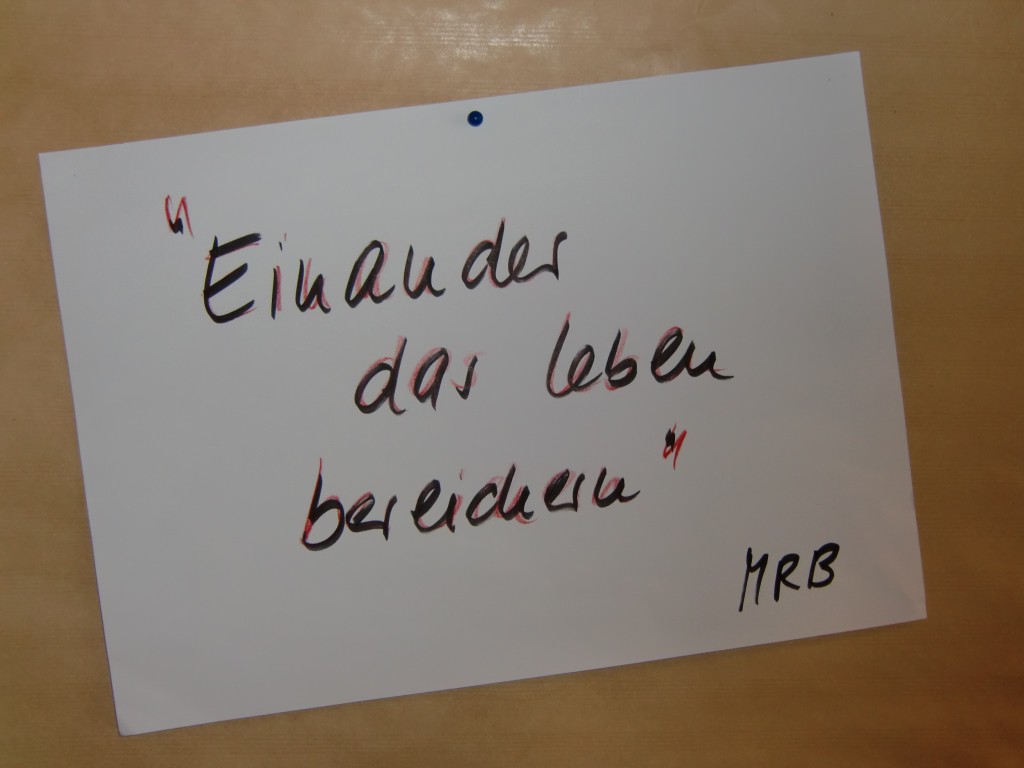 "Einander
das Leben
bereichern"
MRB